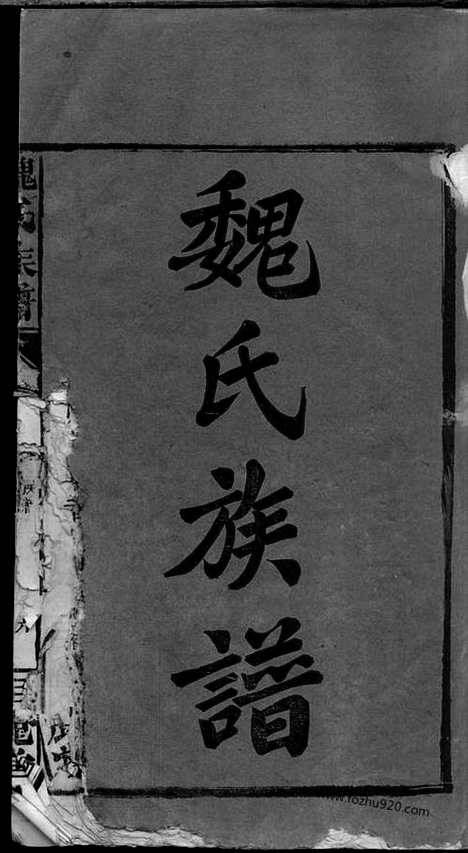 魏氏族譜
魏氏族譜
www.fozhu920.com